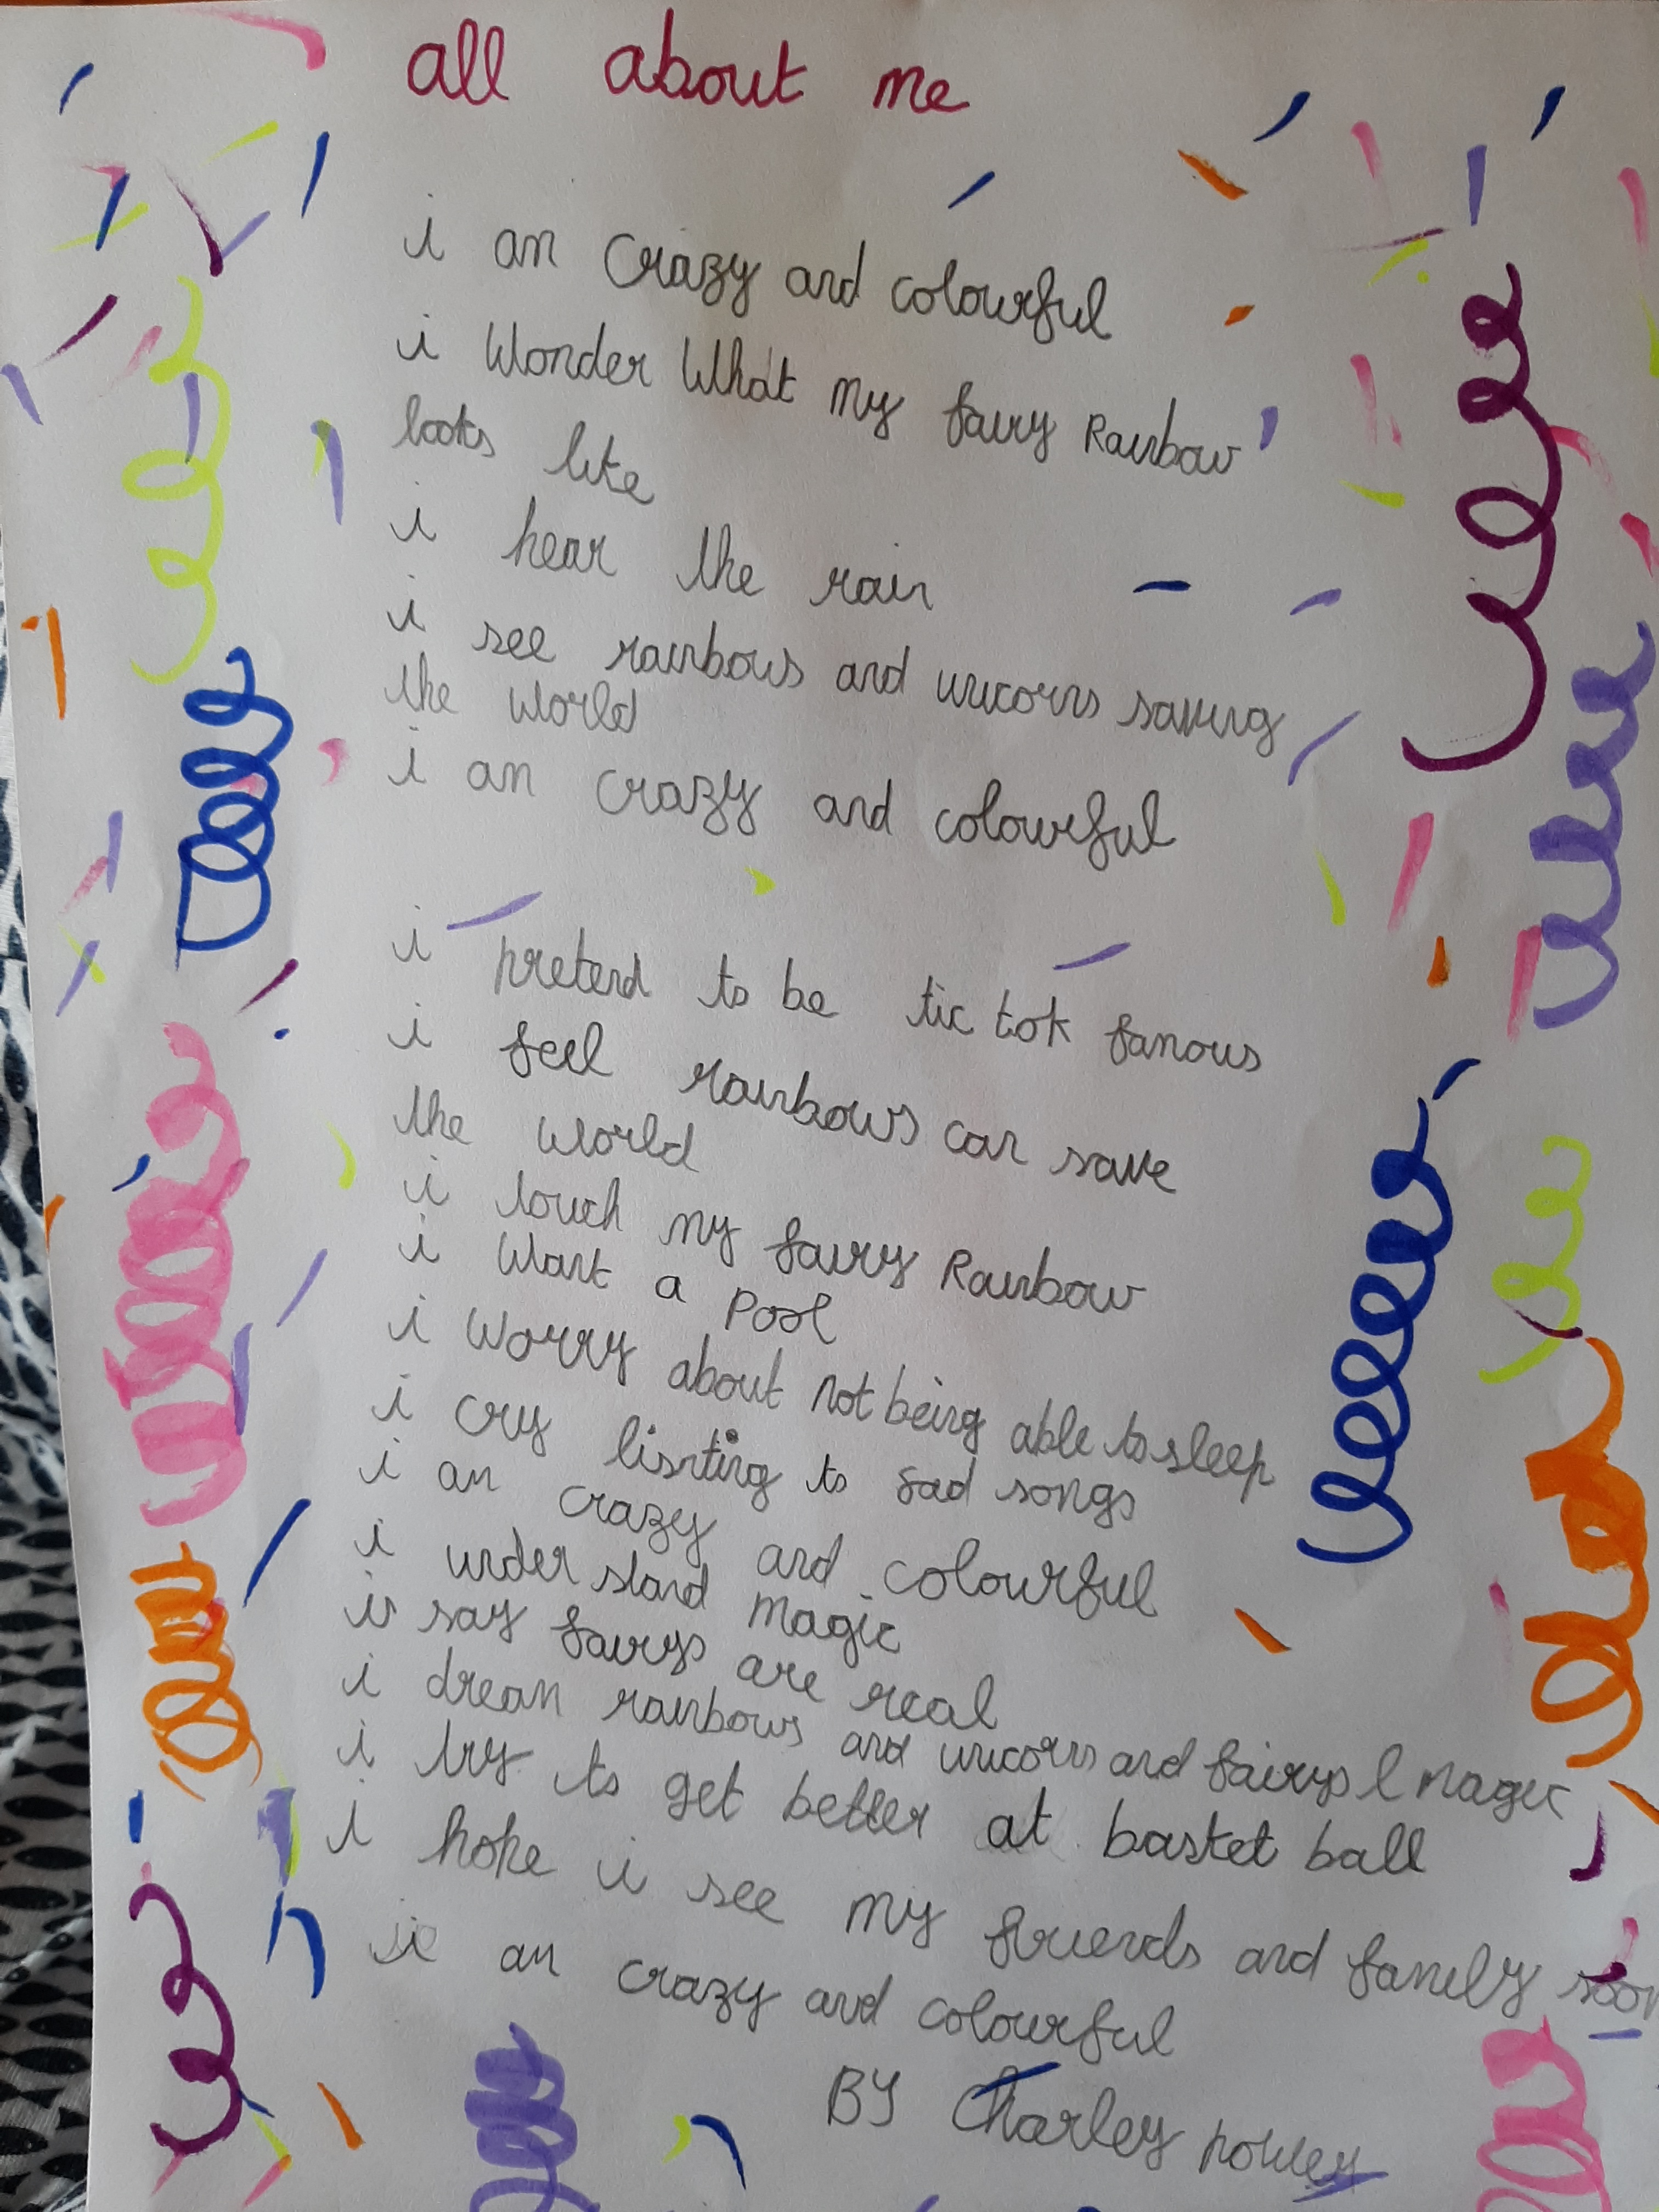 all about me
i am crazy and colourful
i Wonder What my fairy Rainbow
looks like
i hear the rain
i see rainbows and unicorns saving
the world
i am crazy and colourful
i pretend to be tic tok famous
i feel rainbows can save
the world
i touch my fairy Rainbow
i Want a Pool
i Worry about not being able to sleep
i cry lisnting to sad songs
i am crazy and colourful
i under stand magic
i say fairys are real
i dream rainbows and unicorns and fairys magic
i try to get better at basket ball
i hope i see my friends and family soon
i am crazy and colourful
BY Charley